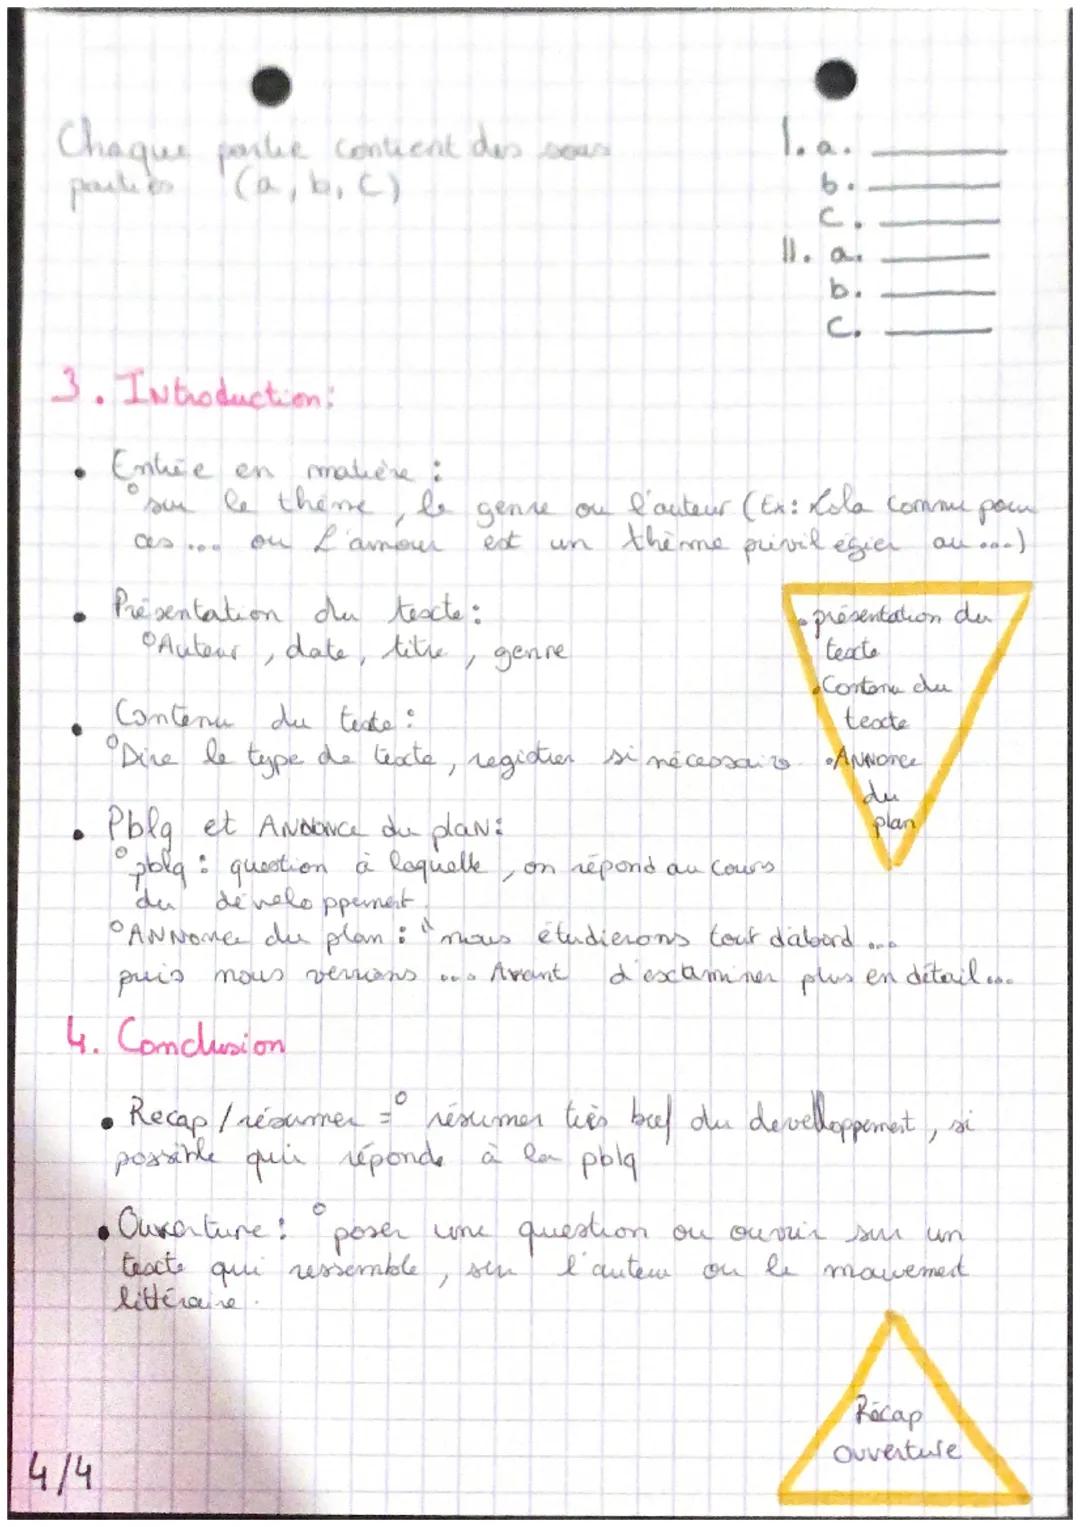 Chaque partie contient des sous
parties (a, b, c)
I. a.
b.
c.
II. a.
b.
c.
3. Introduction:
• Entrée en matière :
° sur le thème, le genre ou l'auteur (Ex: Zola connu pour
ces ... ou L'amour est un thème privilégier au ...)
• Présentation du texte :
° Auteur, date, titre, genre
• Contenu du texte :
° Dire le type de texte, registre si nécessaire
• Pblq et Annonce du plan :
° pblq : question à laquelle, on répond au cours
du développement.
° Annonce du plan : "nous étudierons tout d'abord ...
puis nous verrons ... Avant d'examiner plus en détail ...
• présentation du
texte
• Contenu du
texte
• Annonce
du
plan
4. Conclusion
• Recap / résumer =° résumer très bref du développement, si
possible qui réponde à la pblq
• Ouverture : ° poser une question ou ouvrir sur un
texte qui ressemble, sur l'auteur ou le mouvement
littéraire.
Récap
ouverture
4/4